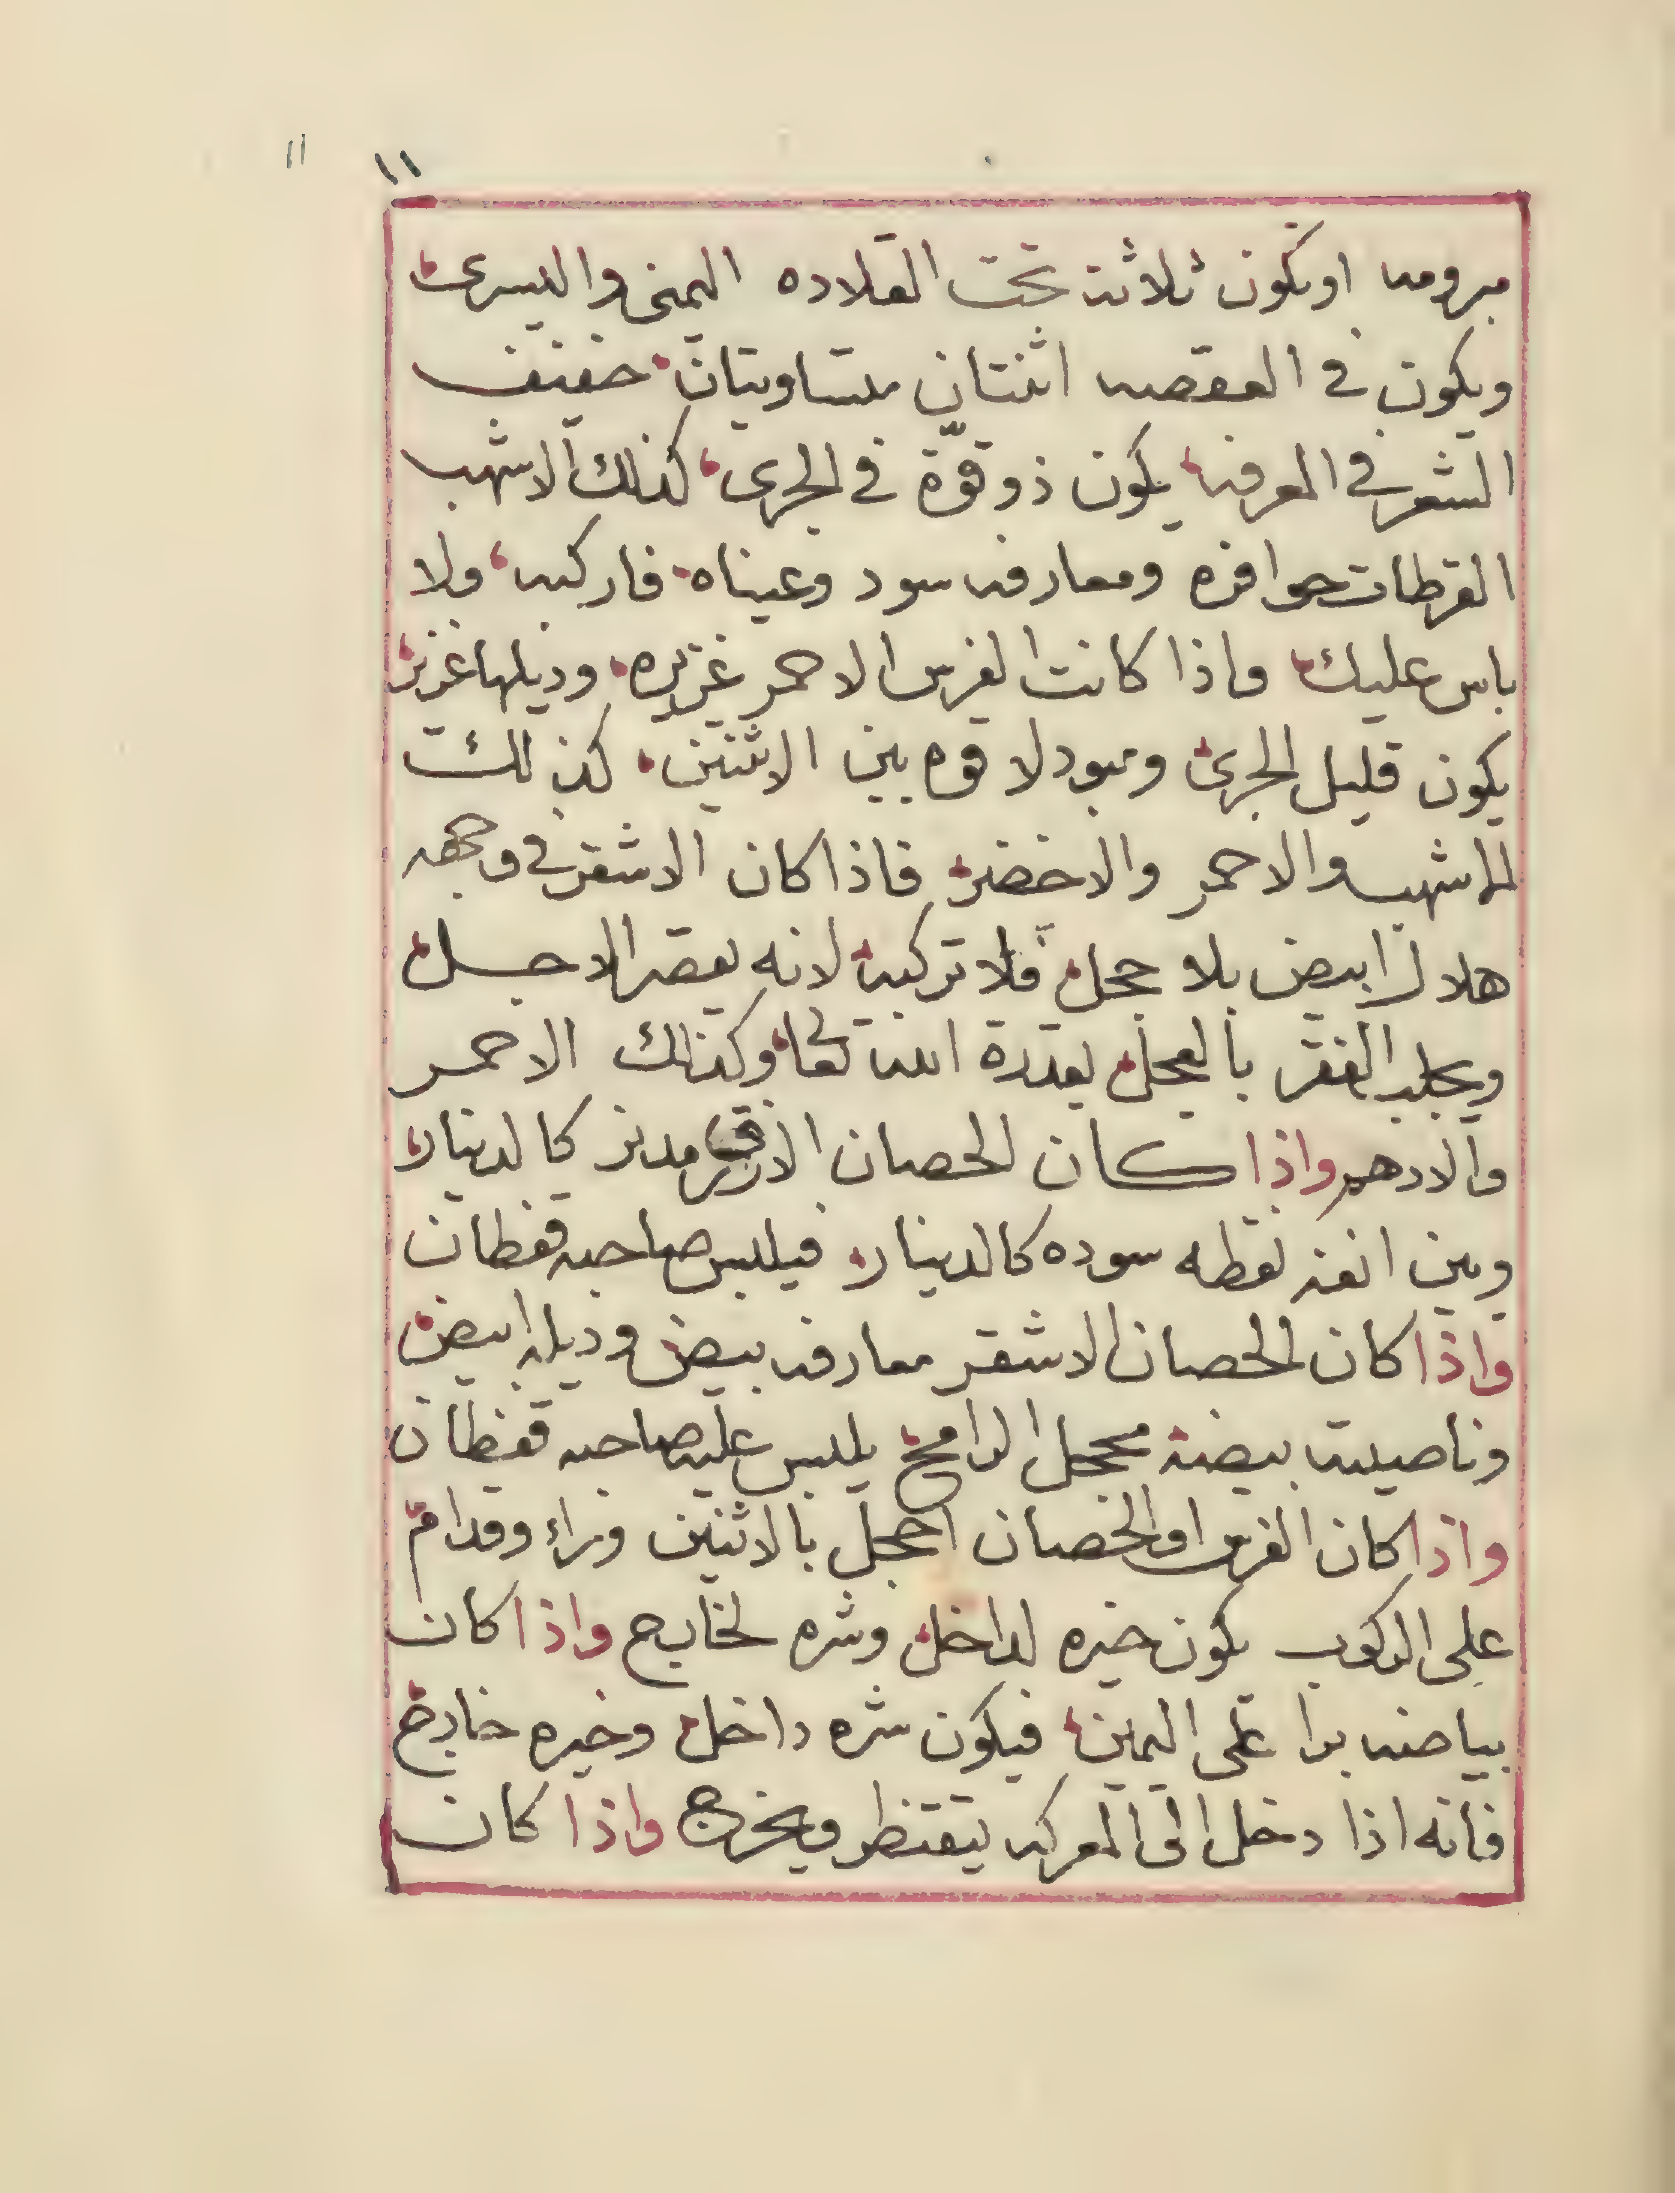 ١١ 11
مبرومه اويكون ثلاثة تحت القلاده اليمنى واليسرى
ويكون في المقصه اثنتان متساويتان خفيف
الشعر في المعرفه يكون ذو قوّة في الجرى كذلك الاشهب
القرطات حوافره ومعارفه سود وعيناه فاركبه ولا
باس عليك واذا كانت الفرس الاحمر غزيره وديلها غزير
يكون قليل الجرى ومبود لا قوه بين الاثنين كذلك
للاشهب والاحمر والاخضر فاذا كان الاشقر في وجهه
هلال ابيض بلا حجل فلا تركبه لانه يقصر الاجل
ويجلب الفقر بالعجل بقدرة الله تعا وكذلك الاحمر
والادهم واذا كان الحصان الازرق مدنر كالدينار
وبين انفه نقطه سوده كالدينار فيلبس صاحبه قفطان
واذا كان الحصان الاشقر معارفه بيض وديله ابيض
وناصيته بيضة محجل الرامح يلبس عليه صاحبه قفطان
واذا كان الفرس او الحصان احجل بالاثنين وراء وقدام
على الركوب يكون خيره لداخل وشره لخارج واذا كان
بياضه برا على اليمين فيكون شره داخل وخيره خارج
فانه اذا دخل الى المعركه يتقنطر ويخرج واذا كان